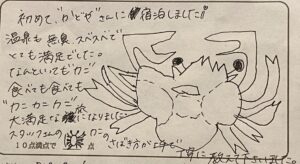 初めて、かどやさんに宿泊しました!
温泉も無臭スベスベで
とても満足でした。
なんといってもカニ
食べても食べても
"カニカニカニ"
大満足な旅になりました
スタッフさんの カニの
さばき方が上手で
丁寧に教えて下さいました。
10点満点で 点